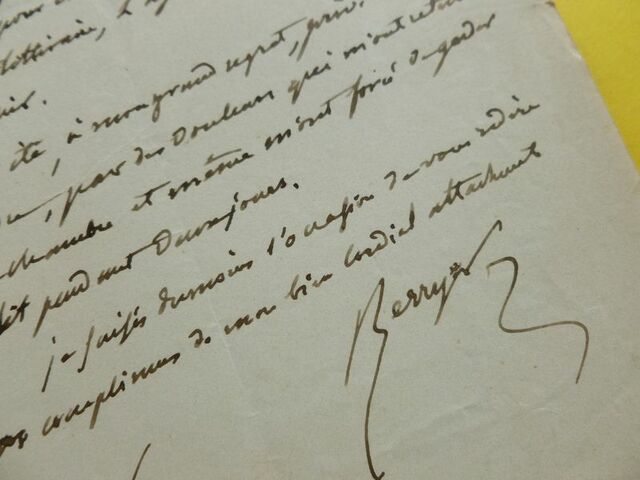 littéraire, à
été, à mon grand regret, privé
par des douleurs qui m'ont retenu
chambre et même m'ont forcé de garder
lit pendant deux jours.
je saisis du moins l'occasion de vous redire
complimens de mon bien cordial attachement
Berryer